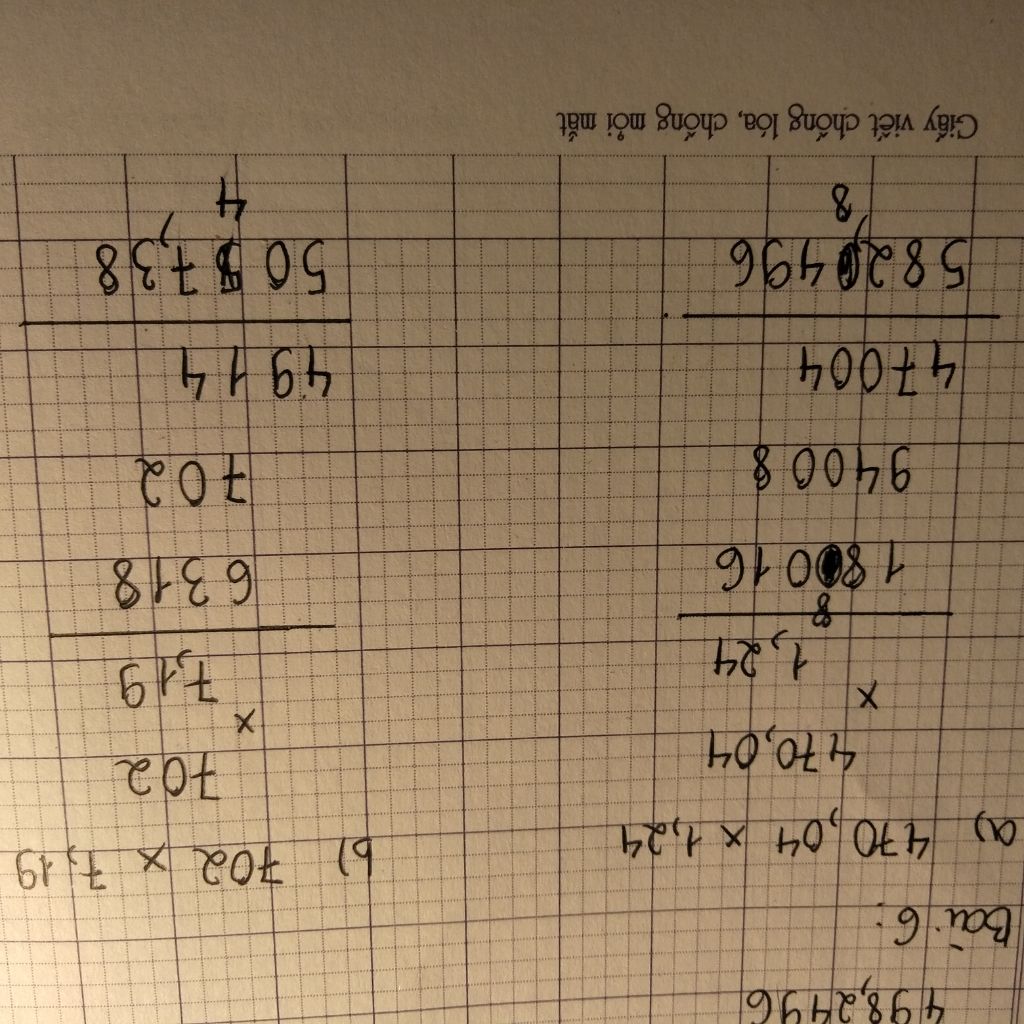 498,2496
Bài 6:
a) 470,04 x 1,24
470,04
x
1,24
188016
94008
47004
582,8496
b) 702 x 7,19
702
x
7,19
6318
702
4914
5047,38
Giấy viết chống lóa, chống mỏi mắt